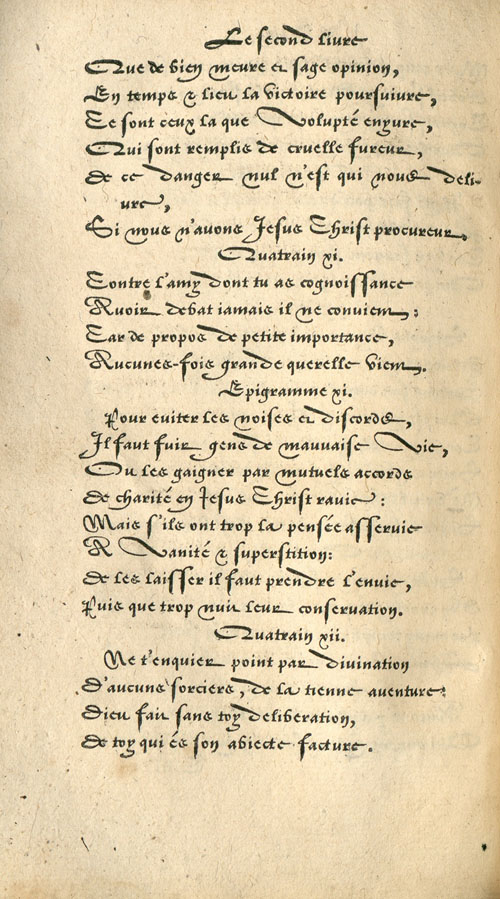 Le second livre
Que de bien meure et sage opinion,
En temps & lieu la victoire poursuivre,
Ce sont ceux la que Volupté enyure,
Qui sont remplis de cruelle fureur,
de ce danger nul n'est qui nous deli-
ure,
Si nous n'avons Jesus Christ procureur.
Quatrain xi.
Contre l'amy dont tu as cognoissance
Avoir debat iamais il ne convient:
Car de propos de petite importance,
Aucunes-fois grande querelle vient.
Epigramme xi.
Pour eviter les noises et discords,
Il faut fuir gens de mauvaise Vie,
Ou les gaigner par mutuels accords
de charité en Jesus Christ ravie:
Mais s'ils ont trop la pensée asservie
A Vanité & superstition:
de les laisser il faut prendre l'envie,
Puis que trop nuit leur conservation.
Quatrain xii.
Ne t'enquier point par divination
d'aucuns sorciers, de la tienne aventure:
dieu fait sans toy deliberation,
de toy qui és son abiecte facture.